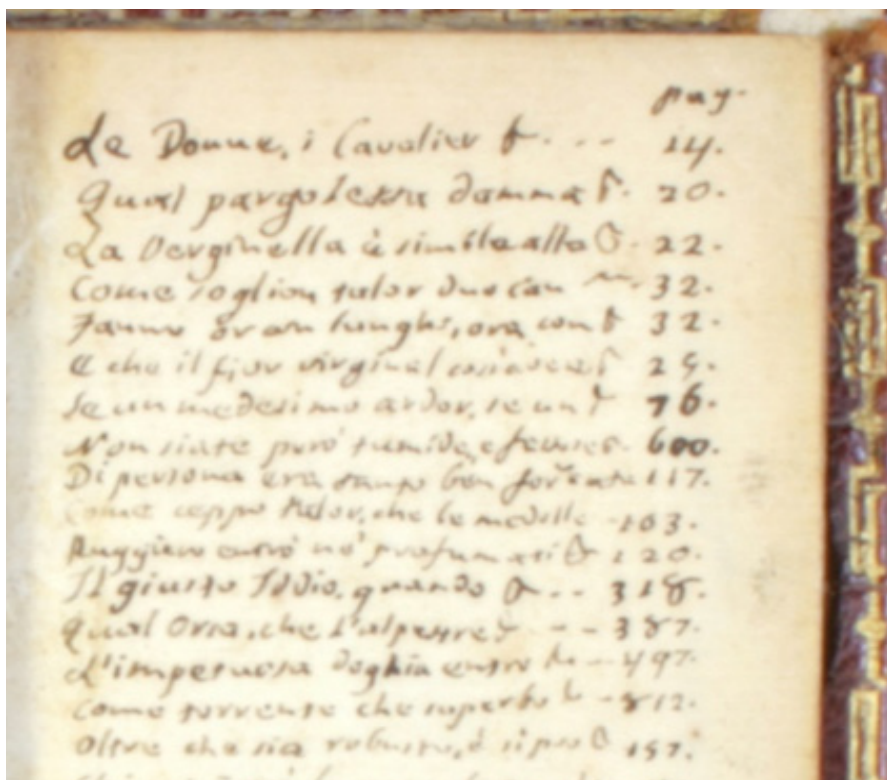 pag.
Le Donne, i Cavalier & . -- 14.
Qual pargoletta damma &. 20.
La Verginella è simile alla &. 22.
Come soglion talor duo can 32.
Fanno or con lunghi, ora con & 32.
E che il fior virginal così 25.
Se un medesimo ardor, se un & 76.
Non siate però tumide, e 600.
Di persona era tanto ben formata 117.
Come ceppo talor, che le medolle - 103.
Ruggiero entrò ne' profumati & 120.
Il giusto Iddio, quando & -- 318.
Qual Orsa, che l'alpestre & --- 387.
L'impetuosa doglia entro -- 497.
Come torrente che superbo - 812.
Oltre che sia robusto, e sì pro & 157.